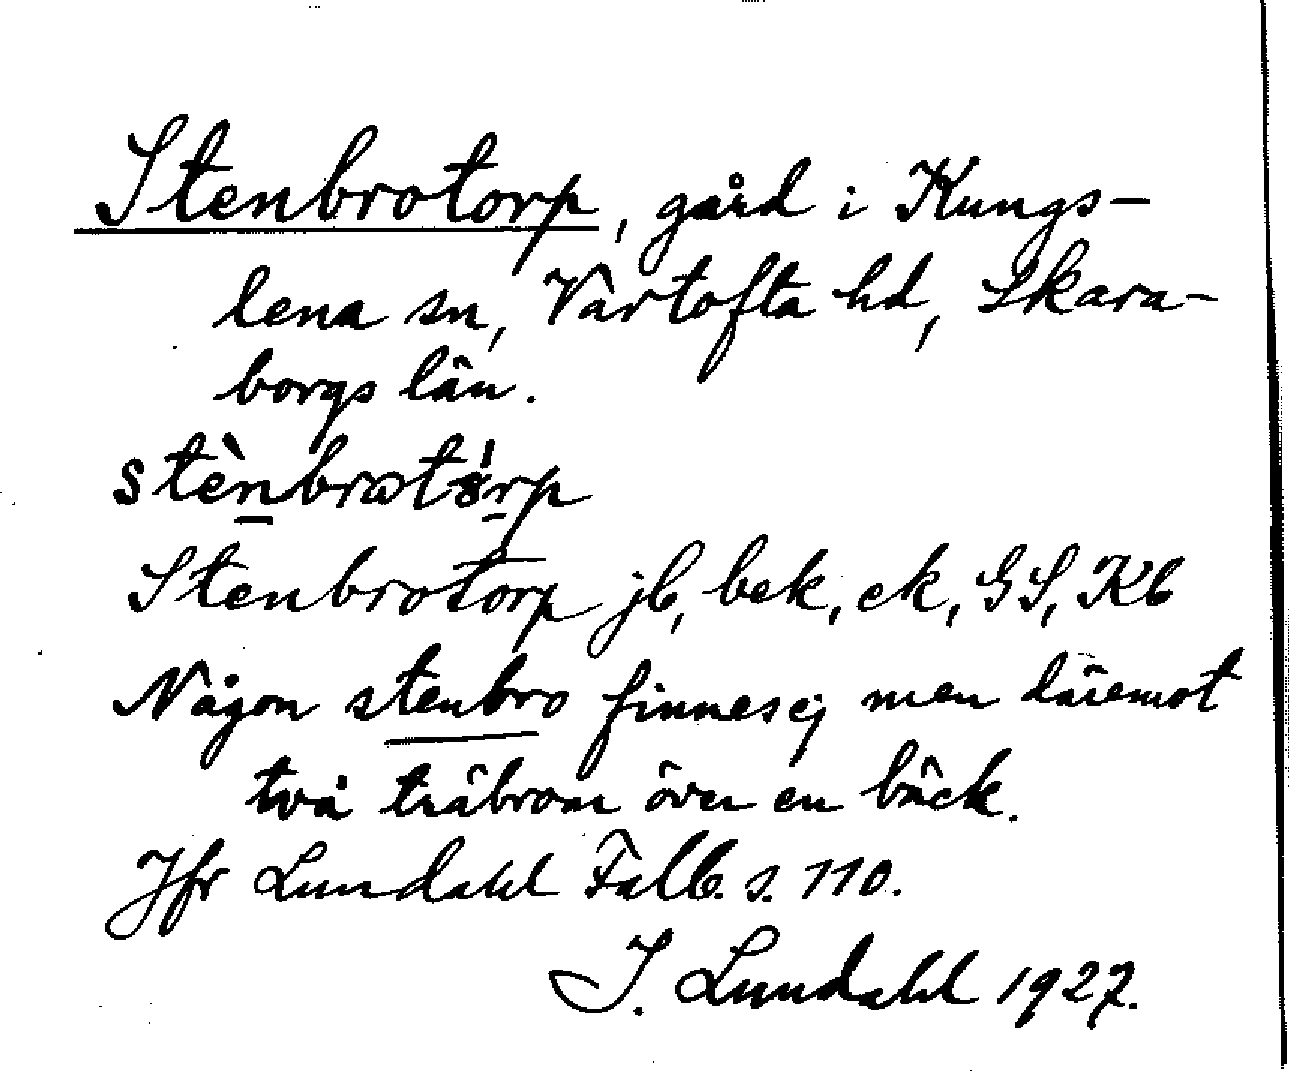 Stenbrotorp, gård i Kungs-
lena sn, Vartofta hd, Skara-
borgs län.
Stenbrotorp jb, bek, ek, GS, Kb
Någon stenbro finnes ej men däremot
två träbroar över en bäck.
Jfr Lundahl Falb. s. 110.
I. Lundahl 1927.